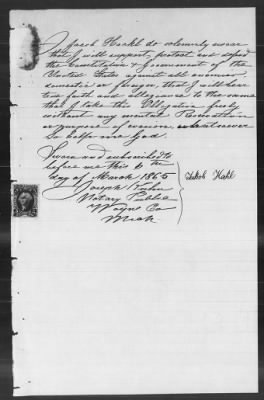 I Jacob Hackl do solemnly swear
that I will support, protect and defend
the Constitution & Government of the
United States against all enemies
domestic or foreign, that I will bear
true faith and allegiance to the same
that I take this Obligation freely
without any mental Reservation
or purpose of evasion whatsoever
So help me God.
Sworn and subscribed to
before me this 6 th
day of March 1865
Joseph Kuhn
Notary Public
Wayne Co
Mich.
Jakob Hakl